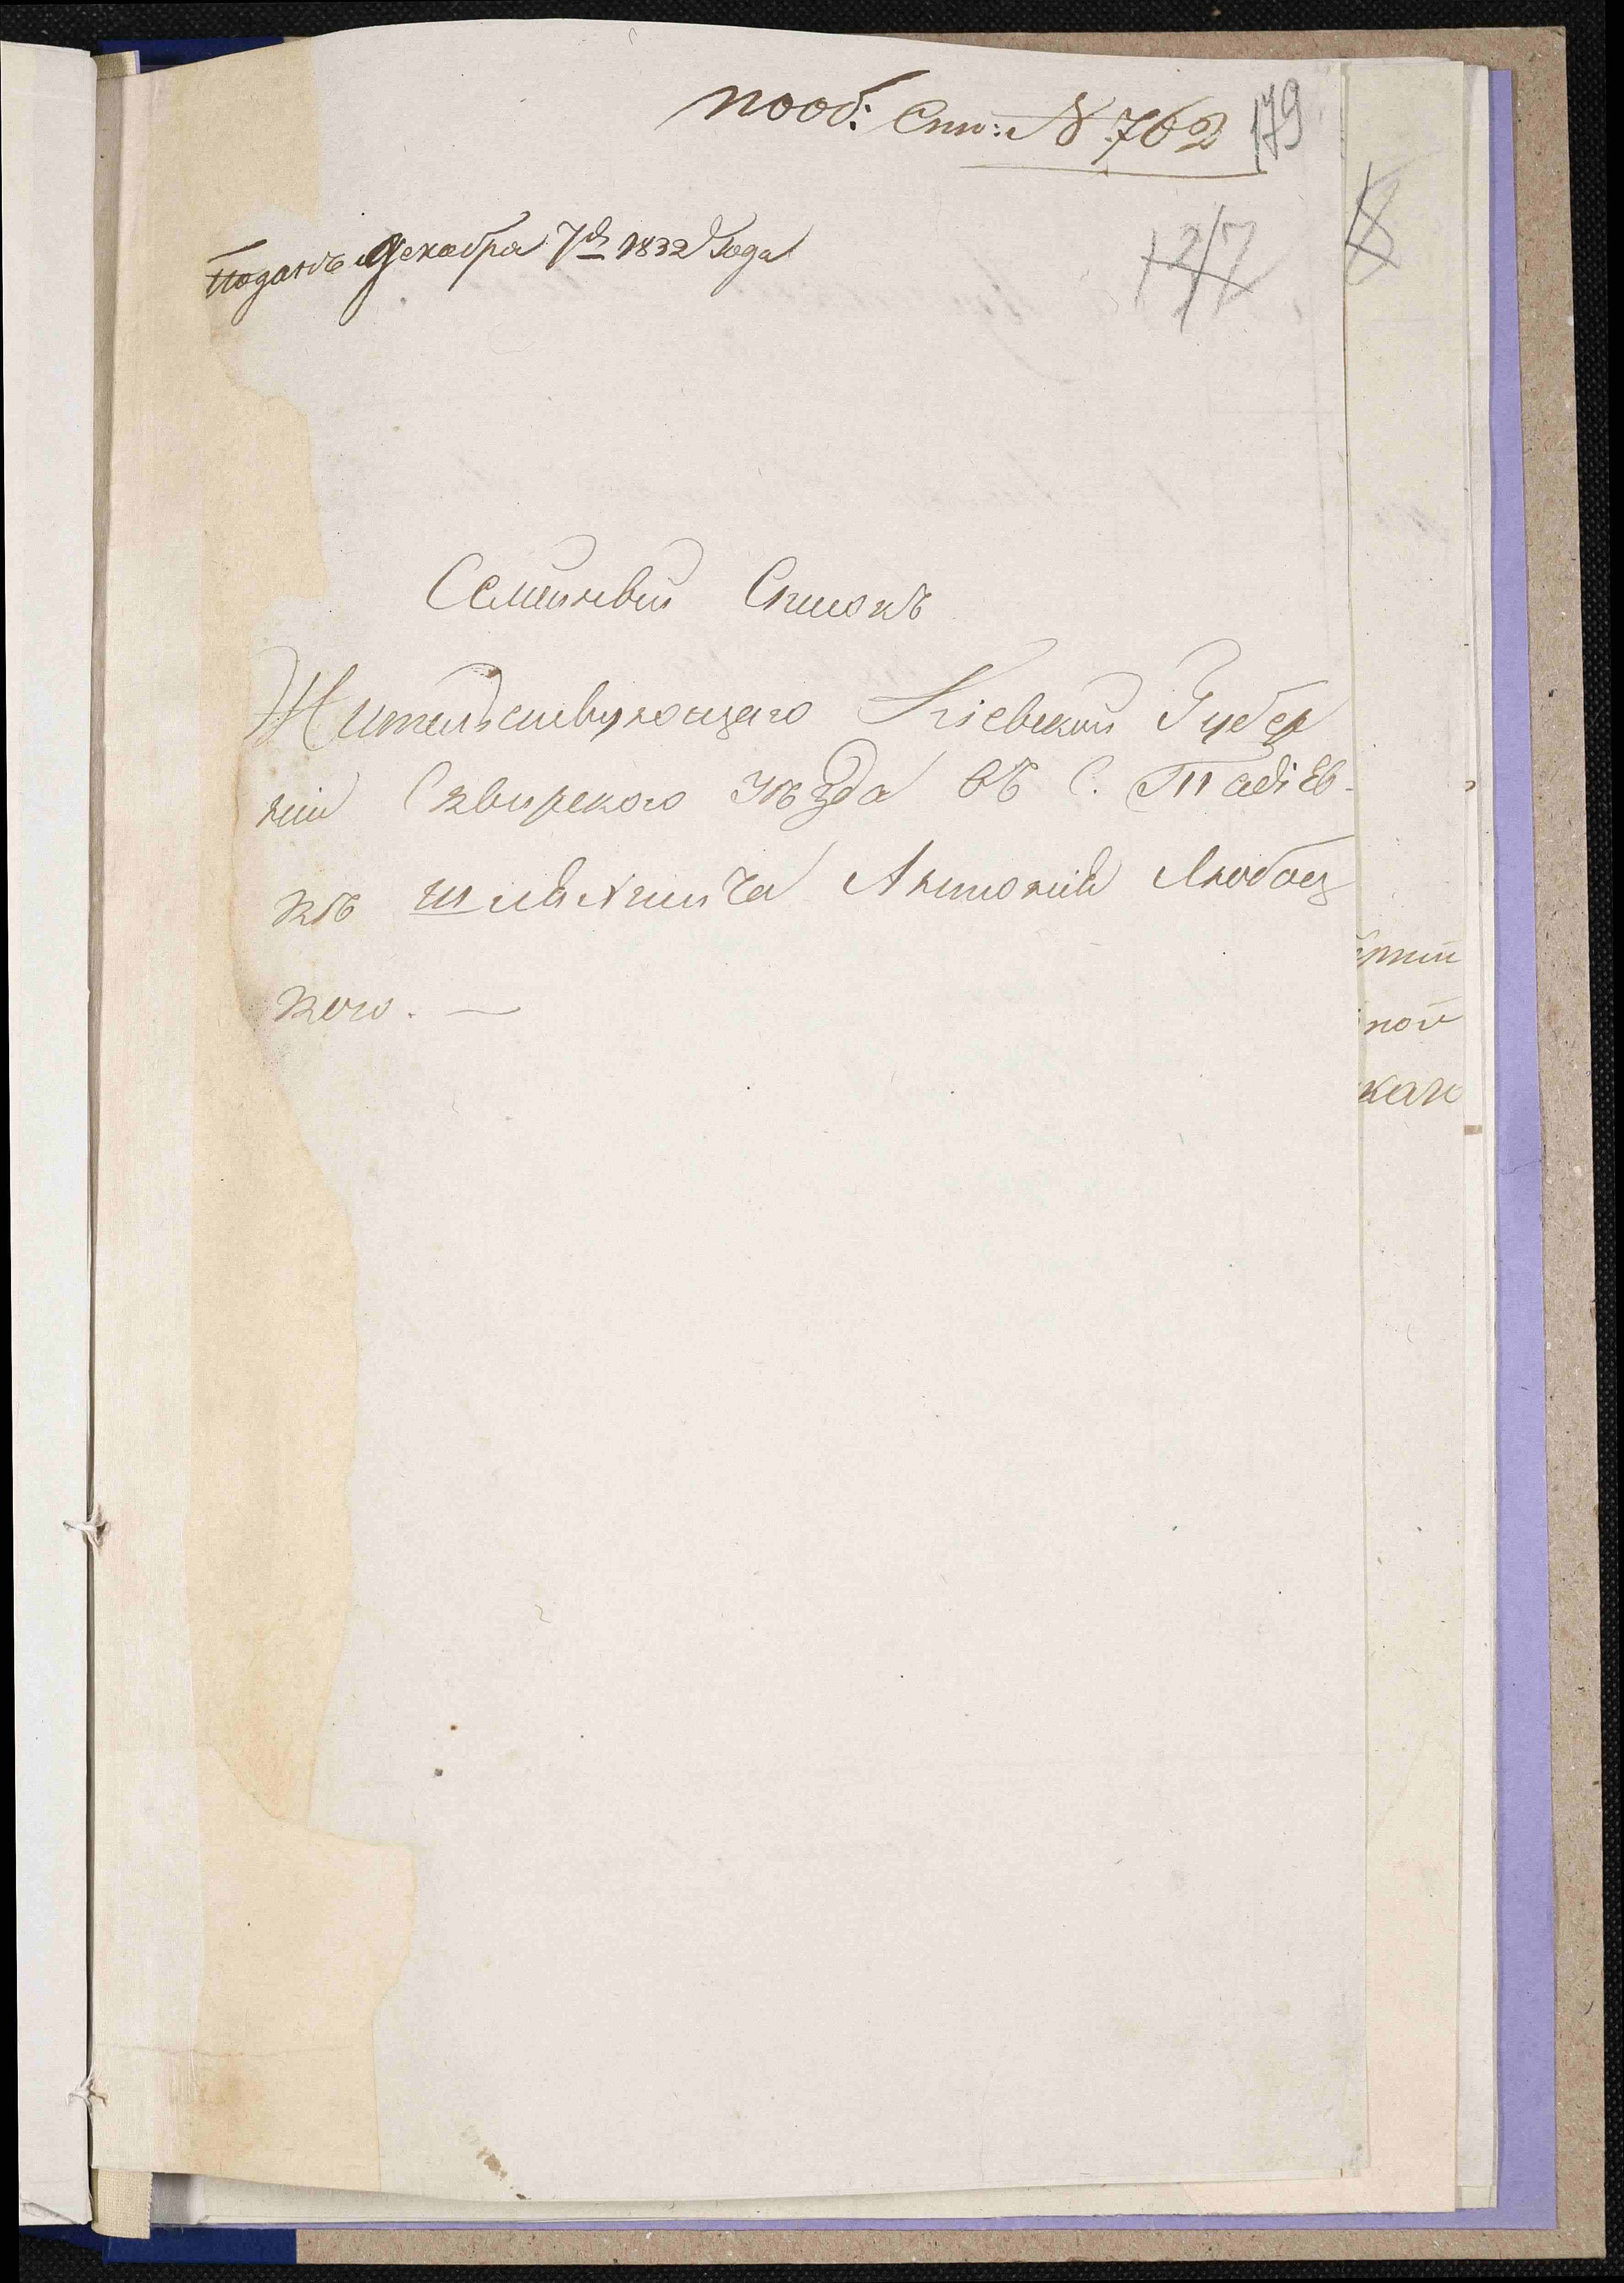 пооб: Спи: № 762 179
Поданъ Декабря 7д 1832 Года
127
Семейный Списокъ
Жительствующаго Кіевской Губер
ніи Сквирского уѣзда въ С. Тадіев-
кѣ шляхтича Антонія Любоец
кого. —
ской
каго